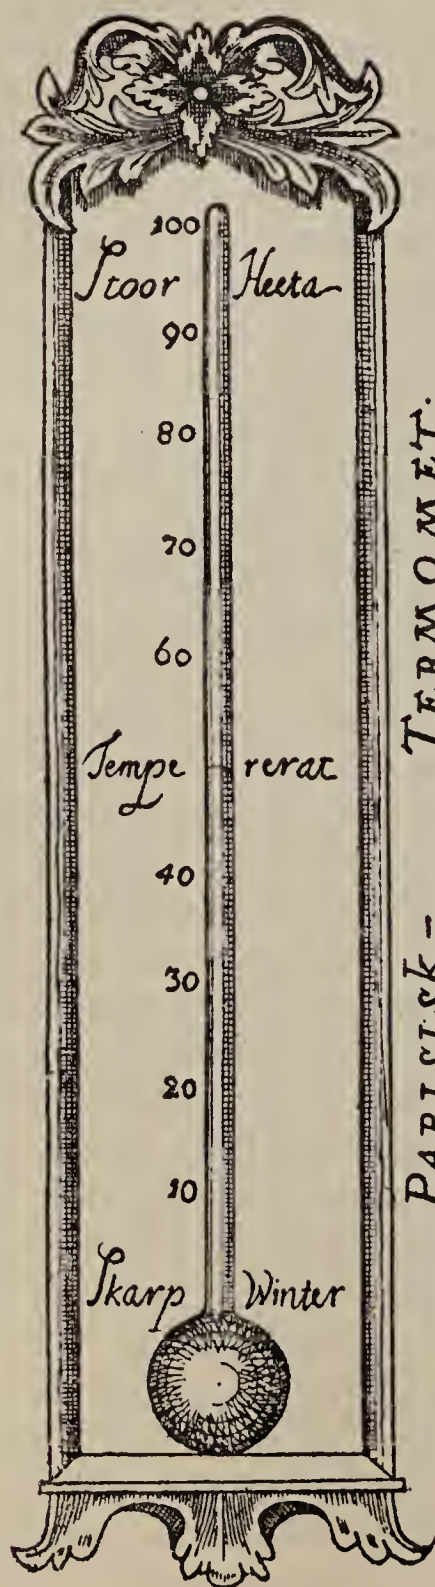 100
Stoor Heeta
90
80
70
60
Tempe rerat
40
30
20
10
Skarp Winter
PARISISK-TERMOMET.